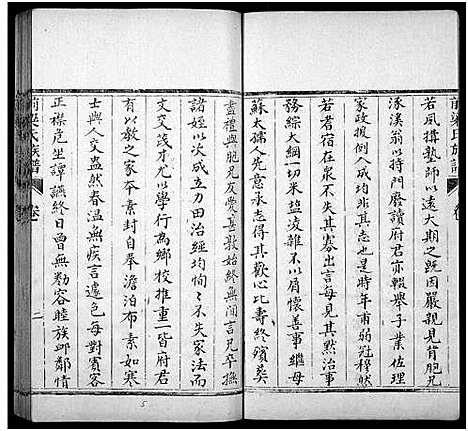 若夙搆塾師以遠大期之既因嚴親見背胞兄
涿溪翁以持門廢讀府君亦輟舉子業佐理
家政援例入成均非其志也是時年甫弱冠穆然
若耆宿在泉不失其寡出門見其點治事
務綜大綱一切米塩凌雜不以屑懷善事繼母
蘇太孺人先意承志得其歡心比壽終殯葬
盡禮與胞兄友愛善敦始終無閒言兄卒撫
諸姪以次成立力田治經均恂恂不失家法而
文交茂才尤以學行為鄉校推重一皆府君
有以教之家本素封自奉澹泊布素如寒
士與人交盎然春温無疾言遽色每對賓客
正襟危坐譚讌終日曾無勌容睦族邮鄰情
前梁氏族譜
卷一
二
5